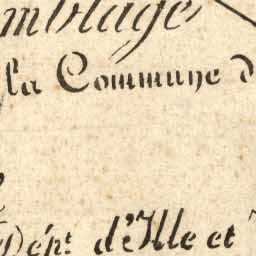 mblage
la Commune d
Dépt. d'Ille et